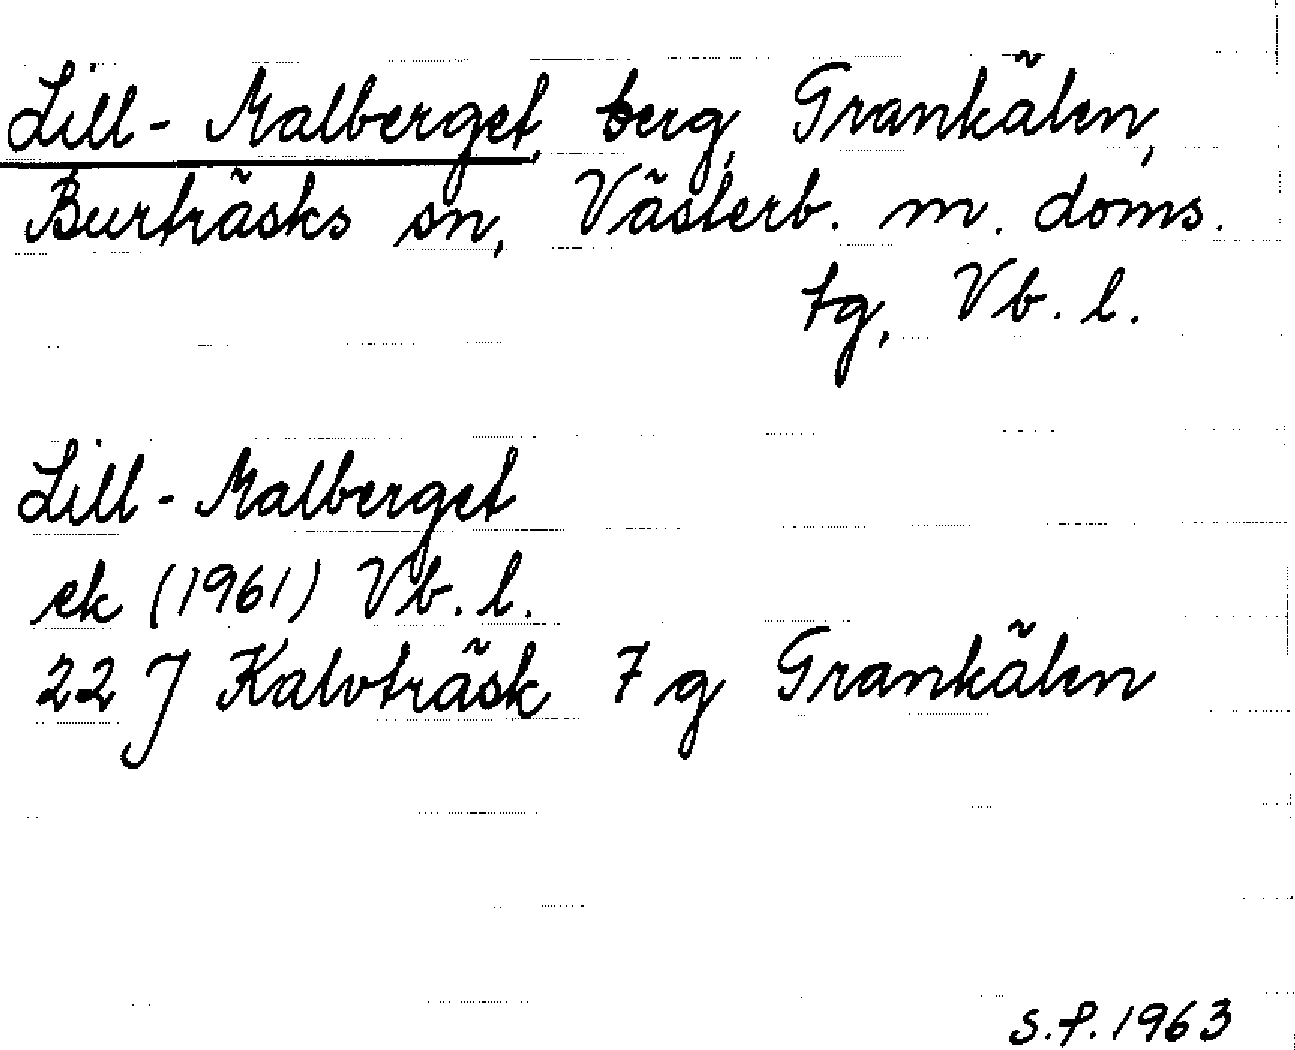 Lill-Malberget, berg, Grankälen,
Burträsks sn, Västerb. m. doms.
tg, Vb. l.
Lill-Malberget
ek (1961) Vb. l.
22 J Kalvträsk 7 g Grankälen
S.P. 1963